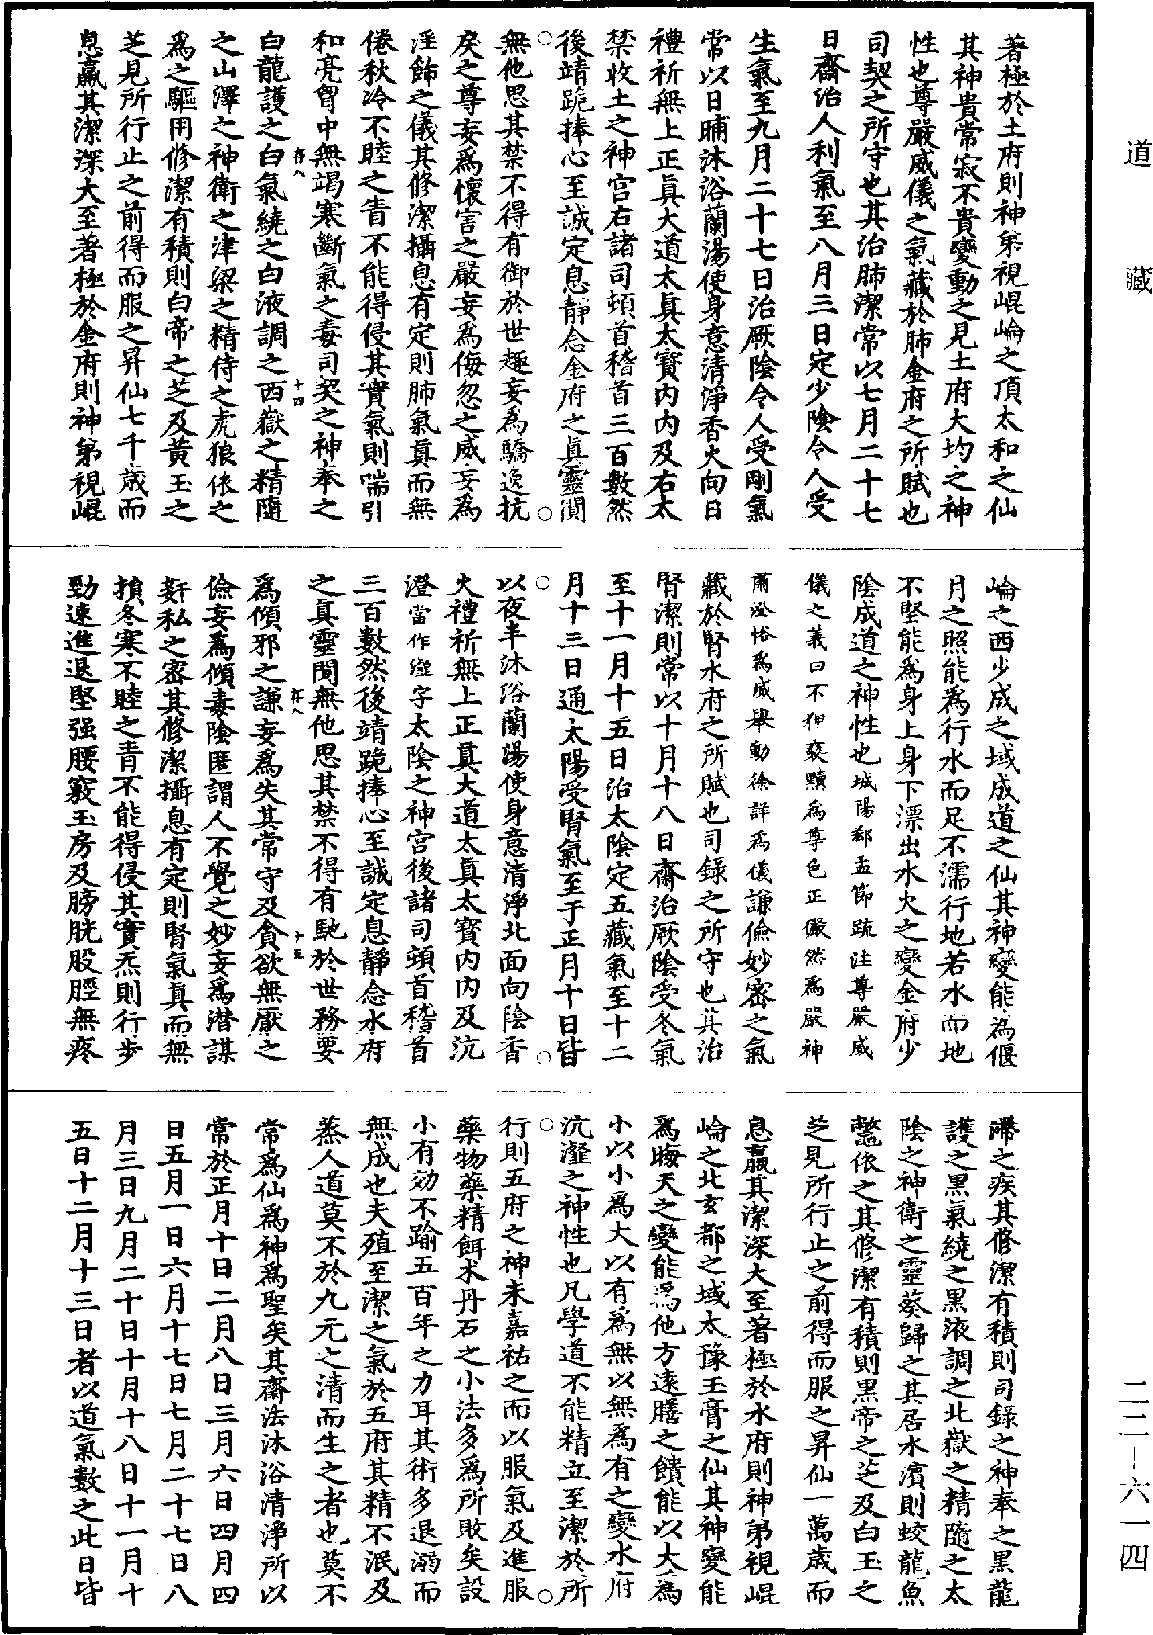 道藏
著極於土府則神第視崐崘之頂太和之仙
其神貴常寂不貴變動之見土府大均之神
性也尊嚴威儀之氣藏於肺金府之所賦也
司契之所守也其治肺潔常以七月二十七
日齋治人利氣至八月三日定少陰令人受
生氣至九月二十七日治厥陰令人受剛氣
常以日晡沐浴蘭湯使身意清淨香火向日
禮祈無上正真大道太真太寶内内及右太
禁收土之神宮右諸司頓首稽首三百數然
後靖跪捧心至誠定息靜念金府之真靈閴
無他思其禁不得有御於世趣妄爲驕逸抗
戾之尊妄爲懷害之嚴妄爲侮忽之威妄爲
淫飾之儀其修潔攝息有定則肺氣真而無
倦秋冷不睦之眚不能得侵其實氣則喘引
和亮胷中無竭寒斷氣之毒司契之神奉之
白龍護之白氣繞之白液調之西嶽之精隨
之山澤之神衛之津梁之精侍之虎狼依之
爲之驅用修潔有積則白帝之芝及黃玉之
芝見所行止之前得而服之昇仙七千歲而
息羸其潔深大至著極於金府則神第視崐
崘之西少成之域成道之仙其神變能爲偃
月之照能爲行水而足不濡行地若水而地
不堅能爲身上身下漂出水火之變金府少
陰成道之神性也城陽郗孟節䟽注尊嚴威
儀之義曰不狎褻黷爲尊色正儼然爲嚴神
肅澄恪爲威舉動徐詳爲儀謙儉妙密之氣
藏於腎水府之所賦也司錄之所守也其治
腎潔則常以十月十八日齋治厥陰受冬氣
至十一月十五日治太陰定五藏氣至十二
月十三日通太陽受腎氣至于正月十日皆
以夜半沐浴蘭湯使身意清淨北面向陰香
火禮祈無上正真大道太真太寶内内及沆
澄當作瀣字太陰之神宮後諸司頭首稽首
三百數然後靖跪捧心至誠定息靜念水府
之真靈閴無他思其禁不得有馳於世務要
爲傾邪之謙妄爲失其常守及貪欲無厭之
儉妄爲傾毒陰匿謂人不覺之妙妄爲潛謀
姧私之密其修潔攝息有定則腎氣真而無
損冬寒不睦之眚不能得侵其實炁則行步
勁速進退堅强腰竅玉房及膀胱股脛無疼
滯之疾其修潔有積則司錄之神奉之黑龍
護之黑氣繞之黑液調之北嶽之精隨之太
陰之神衛之靈蔡歸之其居水濱則蛟龍魚
鼈依之其修潔有積則黑帝之芝及白玉之
芝見所行止之前得而服之昇仙一萬歲而
息羸其潔深大至著極於水府則神第視崐
崘之北玄都之域太豫玉膏之仙其神變能
爲晦天之變能爲他方遠膳之饋能以大爲
小以小爲大以有爲無以無爲有之變水府
沆瀣之神性也凡學道不能精立至潔於所
行則五府之神未嘉祐之而以服氣及進服
藥物藥精餌术丹石之小法多爲所敗矣設
小有効不踰五百年之力耳其術多退溺而
無成也夫殖至潔之氣於五府其精不泯及
蒸人道莫不於九元之清而生之者也莫不
常爲仙爲神爲聖矣其齋法沐浴清淨所以
常於正月十日二月八日三月六日四月四
日五月一日六月十七日七月二十七日八
月三日九月二十日十月十八日十一月十
五日十二月十三日者以道氣數之此日皆
存八
十四
存八
十五
二二－六一四